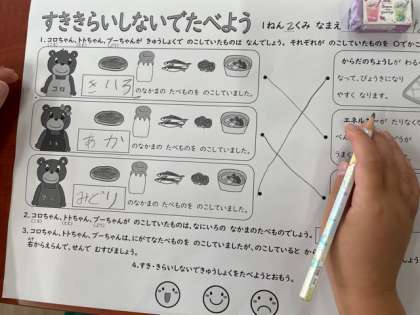 すききらいしないでたべよう
1ねん 2くみ なまえ
1. コロちゃん、トトちゃん、プーちゃんが きゅうしょくで のこしていたものは なんでしょう。それぞれが のこしていたものを ○でかこ
コロ
きいろ
のなかまの たべものを のこしていました。
あか
のなかまの たべものを のこしていました。
みどり
のなかまの たべものを のこしていました。
からだのちょうしが わる
なって、びょうきになり
やすく なります。
エネルギーが たりなく
2. コロちゃん、トトちゃん、プーちゃんが のこしていたものは、なにいろの なかまのたべものでしょう。
3. コロちゃん、トトちゃん、プーちゃんは、にがてなたべものを のこしていましたが、のこしていると から
右からえらんで、せんで むすびましょう。
4. すき・きらいしないできゅうしょくをたべようとおもう。